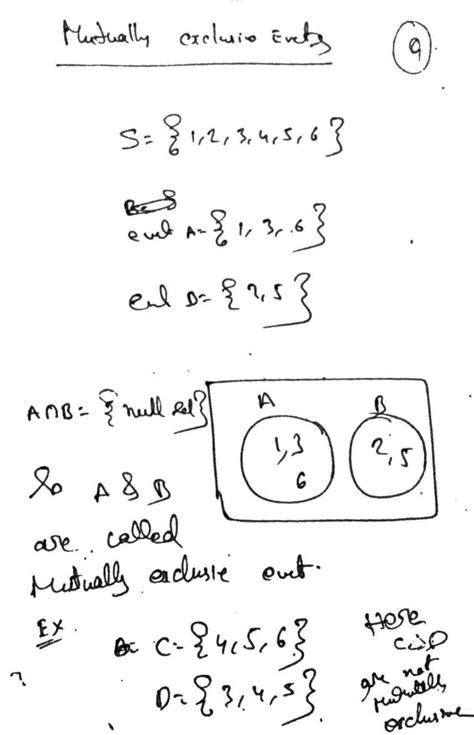 Mutually exclusive Events
9
S = { 1, 2, 3, 4, 5, 6 }
event A = { 1, 3, 6 }
event B = { 2, 5 }
A∩B = { null set }
A B
1, 3 2, 5
6
So A & B
are called
Mutually exclusive event.
EX.
C = { 4, 5, 6 }
D = { 3, 4, 5 }
Here
C & D
are not
mutually
exclusive